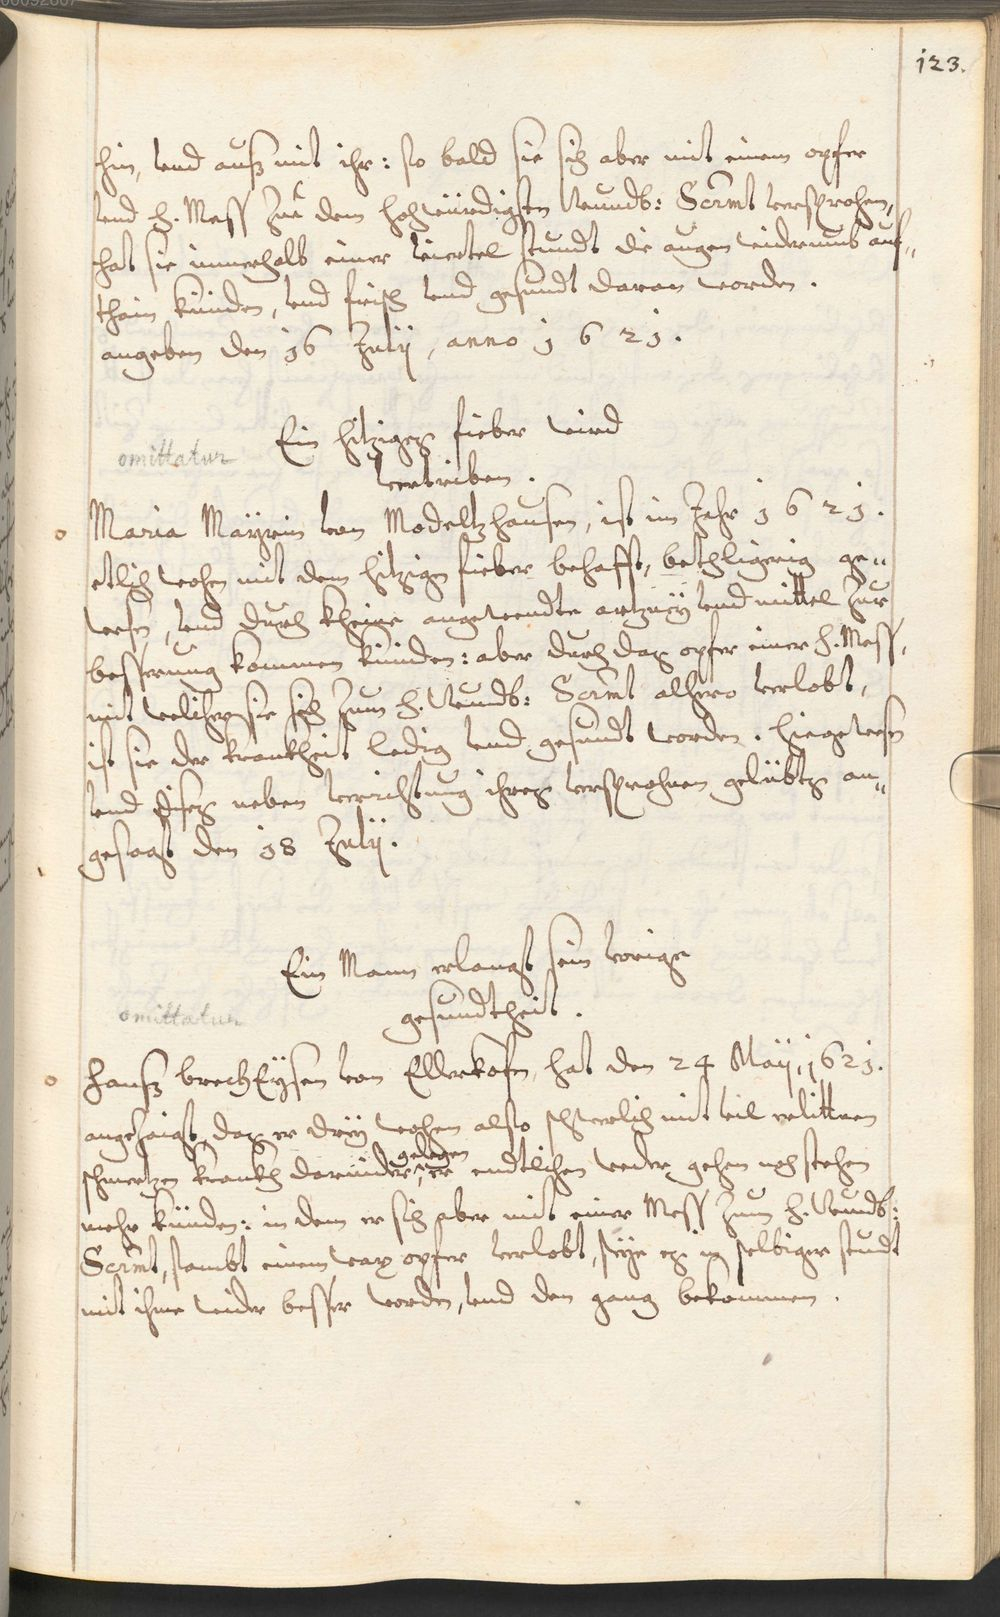 123.
hin, vnd auß mit ihr: so bald sie sich aber mit einem opfer
vnd h. Mess Zue dem hochwürdigsten Wundb: Scrmt versprochen,
hat sie innerhalb einer viertel stundt die augen widerumb auf-
thain künden, vnd frisch vnd gesundt daran worden.
angeben den 16 Julij, anno 1621.
Ein hitziges fieber wird
omittatur
vertriben.
Maria Mayrin von Modeltzhausen, ist im Jahr 1621.
etlich wochen mit dem hitzigen fieber behafft, bethligerig ge-
wesen, vnd durch kheine angewendte artzney vnd mittel Zur
besserung kommen künden: aber durch das opfer einer h. Mess,
mit welicher sie sich Zum h. Wundb: Scrmt alhero verlobt,
ist sie der krankheit ledig vnd gesundt worden. hiegewesen
vnd dises neben verrichtung ihres versprochnen gelübts an-
gesagt den 18 Julij.
Ein Mann erlangt sein vorige
omittatur
gesundtheit.
Hanß brechEysen von Ellerkofen, hat den 24 Maij, 1621.
angezaigt, das er drey wochen also schwerlich mit vil erlittnen
gelegen
schmertzen krankh darnider, er endtlichen weder gehen noch stehen
mehr künden: in dem er sich aber mit einer Mess Zum h. Wundb:
Scrmt, sambt einem wax opfer verlobt, seye es in selbiger stundt
mit ihme wider besser worden, vnd den gang bekommen.